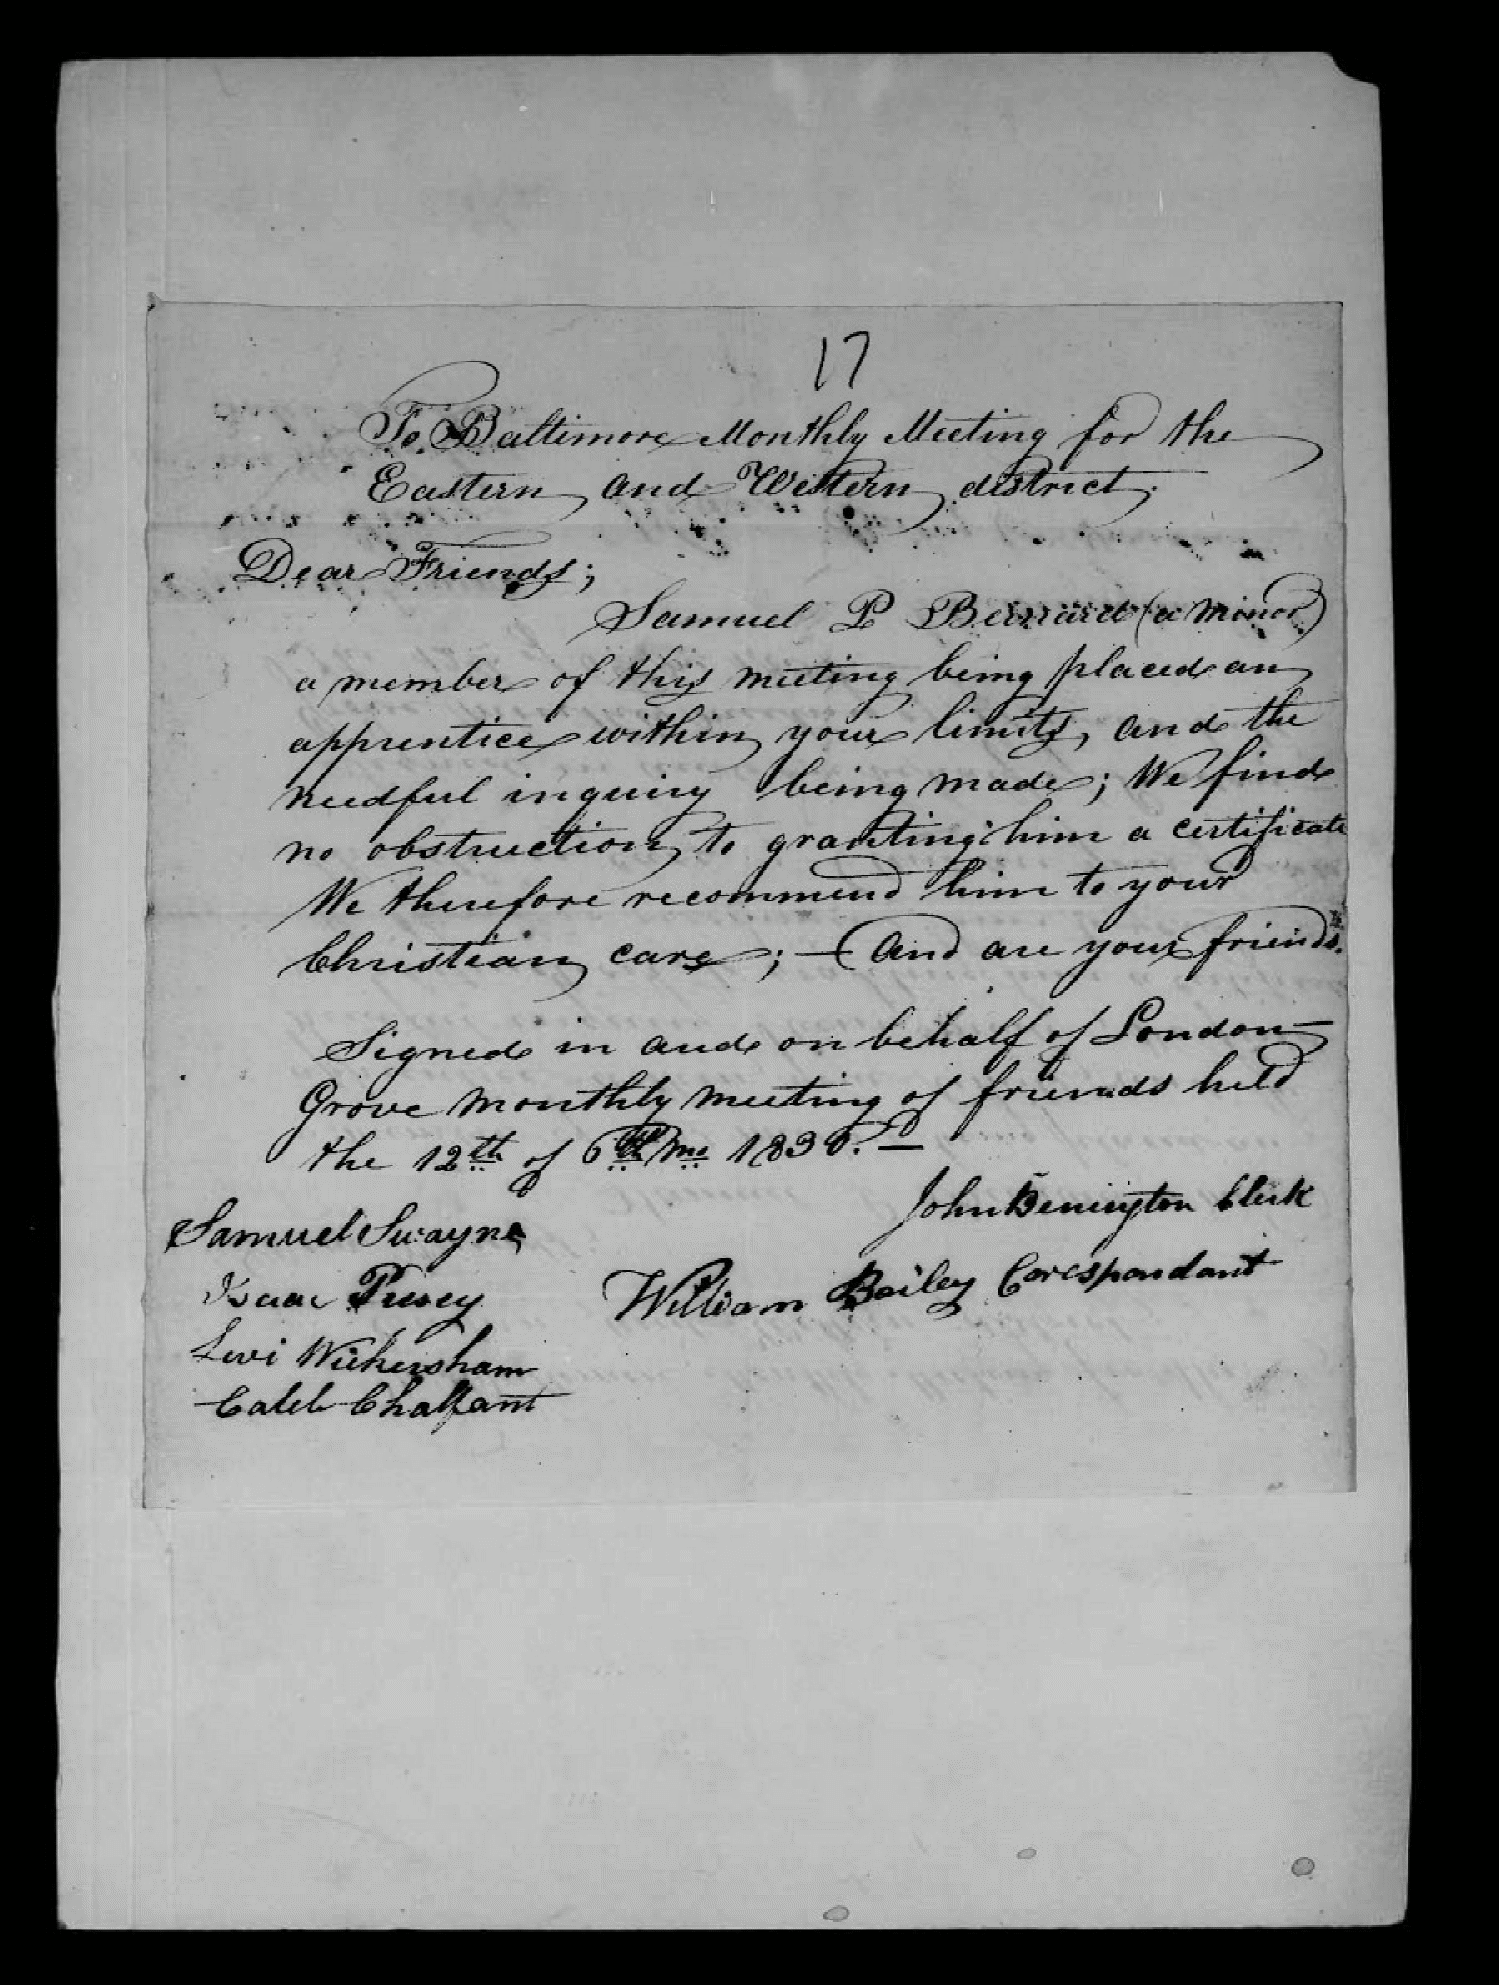 17
To Baltimore Monthly Meeting for the
Eastern and Western district.
Dear Friends;
Samuel P Bernard (a minor)
a member of this meeting being placed an
apprentice within your limits, and the
needful inquiry being made; We find
no obstruction to granting him a certificate
We therefore recommend him to your
Christian care; — And are your friends.
Signed in and on behalf of London
Grove monthly meeting of friends held
the 12th of 6th mo 1830. —
John Benington Clerk
Samuel Swayne
William Bailey Corespondant
Isaac Pusey
Levi Wickersham
Caleb Chalfant